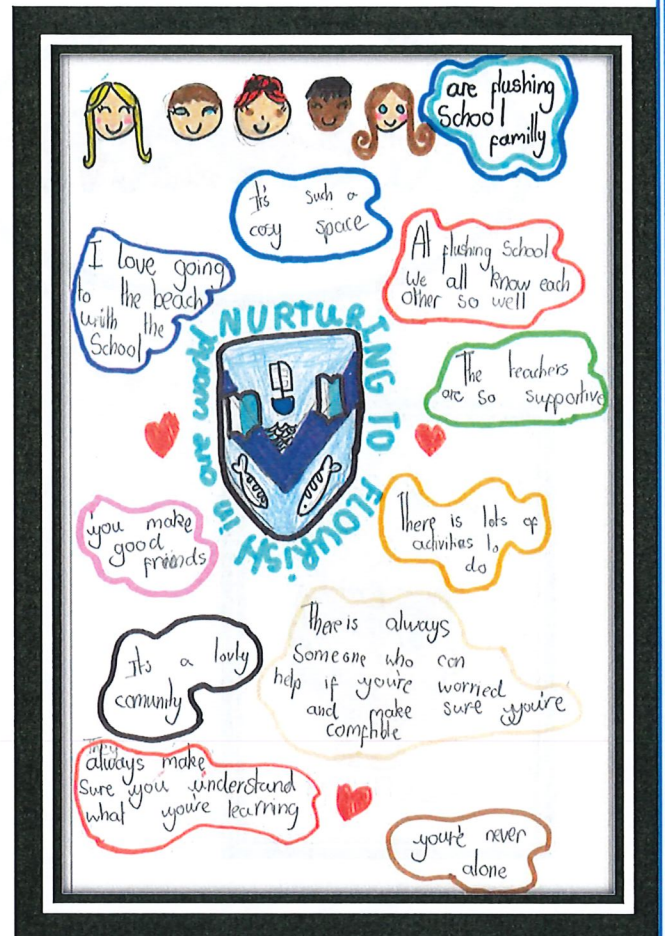 are flushing
School
familly
It's such a
cosy space
I love going
to the beach
with the
School
At flushing School
we all know each
other so well
NURTURING TO FLOURISH in are world
The teachers
are so supportive
you make
good
friends
There is lots of
activitas to
do
It's a lovly
comunity
There is always
Someone who can
help if you're worried
and make sure you're
comftble
They
always make
Sure you understand
what you're learning
you're never
alone